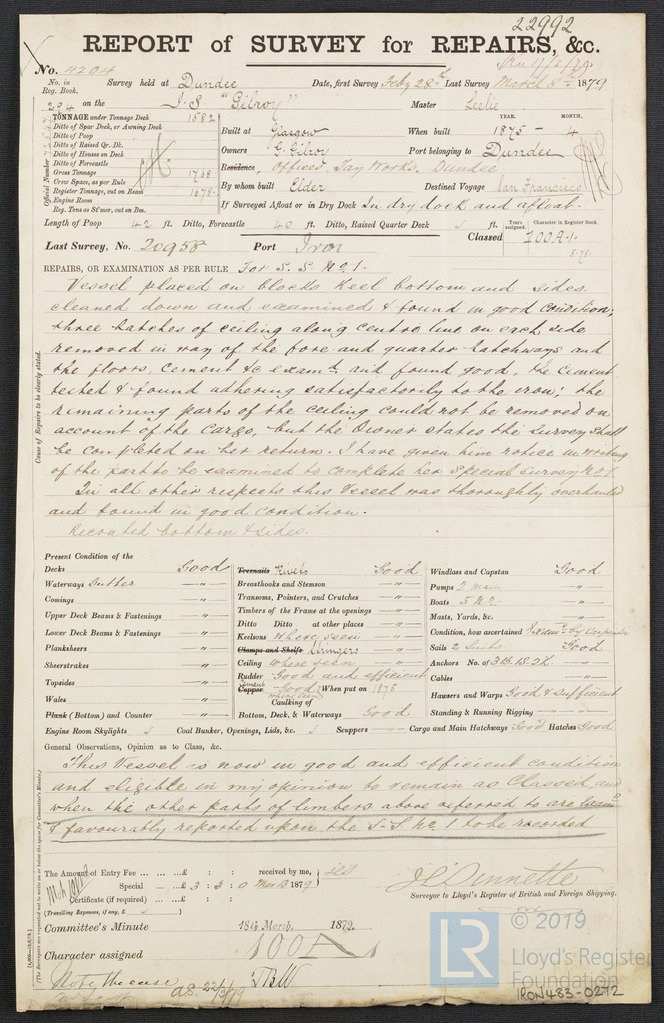 22992
REPORT of SURVEY for REPAIRS, &c.
No. 4204
No. in Reg. Book. Survey held at Dundee Date, first Survey Feby 28th Last Survey March 8th 1879
294 on the I.S "Gilroy" Master Leslie
TONNAGE under Tonnage Deck 1582
Ditto of Spar Deck, or Awning Deck
Ditto of Poop
Ditto of Raised Qr. Dk.
Ditto of Houses on Deck
Ditto of Forecastle
Gross Tonnage 1768
Crew Space, as per Rule
Register Tonnage, cut on Beam 1678
Engine Room
Reg. Tons as St'mer, cut on Bm.
Official Number
YEAR. MONTH.
Built at Glasgow When built 1875 - 4
Owners G. Gilroy Port belonging to Dundee
Residence, Offices, Tay Works, Dundee
By whom built Elder Destined Voyage San Francisco
If Surveyed Afloat or in Dry Dock In dry dock and afloat.
Length of Poop 42 ft. Ditto, Forecastle 40 ft. Ditto, Raised Quarter Deck ft.
Years assigned. Character in Register Book.
Last Survey, No. 20958 Port Iron Classed 100A-1.
5.78.
REPAIRS, OR EXAMINATION AS PER RULE For S. S. No. 1.
Vessel placed on blocks Keel bottom and sides
cleaned down and examined & found in good condition;
three hatches of ceiling along centre line on each side
removed in way of the fore and quarter hatchways and
the floors, cement &c examd and found good, the Cement
tested & found adhering satisfactorily to the iron; the
remaining parts of the ceiling could not be removed on
account of the Cargo, but the Owner states the survey shall
be completed on her return. I have given him notice in writing
of the part to be examined to complete her Special Survey No 1
In all other respects this Vessel was thoroughly overhauled
and found in good condition.
Recoated bottom & sides.
Cause of Repairs to be clearly stated.
Present Condition of the
Decks Good
Waterways Gutter "
Comings "
Upper Deck Beams & Fastenings "
Lower Deck Beams & Fastenings "
Planksheers "
Sheerstrakes "
Topsides "
Wales "
Plank (Bottom) and Counter "
Treenails Rivets Good
Breasthooks and Stemson "
Transoms, Pointers, and Crutches "
Timbers of the Frame at the openings "
Ditto Ditto at other places "
Keelsons where seen "
Clamps and Shelfs Stringers "
Ceiling where seen "
Rudder Good and efficient
Copper Cement Good where seen When put on 1875
Caulking of
Bottom, Deck, & Waterways Good
Windlass and Capstan Good
Pumps 2 main "
Boats 5 No. "
Masts, Yards, &c. "
Condition, how ascertained Examd by Carpenter
Sails 2 Suits Good
Anchors No. of 3B. 1S. 2K. "
Cables "
Hawsers and Warps Good & sufficient
Standing & Running Rigging "
Engine Room Skylights Coal Bunker, Openings, Lids, &c. Scuppers Cargo and Main Hatchways Good Hatches Good
General Observations, Opinion as to Class, &c.
This Vessel is now in good and efficient condition
and eligible in my opinion to remain as Classed and
when the other parts of limbers above referred to are examd
& favourably reported upon the S-S No. 1 to be recorded
The Amount of Entry Fee £ : : received by me,
Special £ 3 : 3 : 0 Mar 13 1879
Certificate (if required) : :
(Travelling Expenses, if any, £ )
Surveyor to Lloyd's Register of British and Foreign Shipping.
Committee's Minute 18th March, 1879.
Character assigned 100 A 1
Note the case
22/3/79
© 2019
LR
Lloyd's Register
Foundation
IRON483-0272